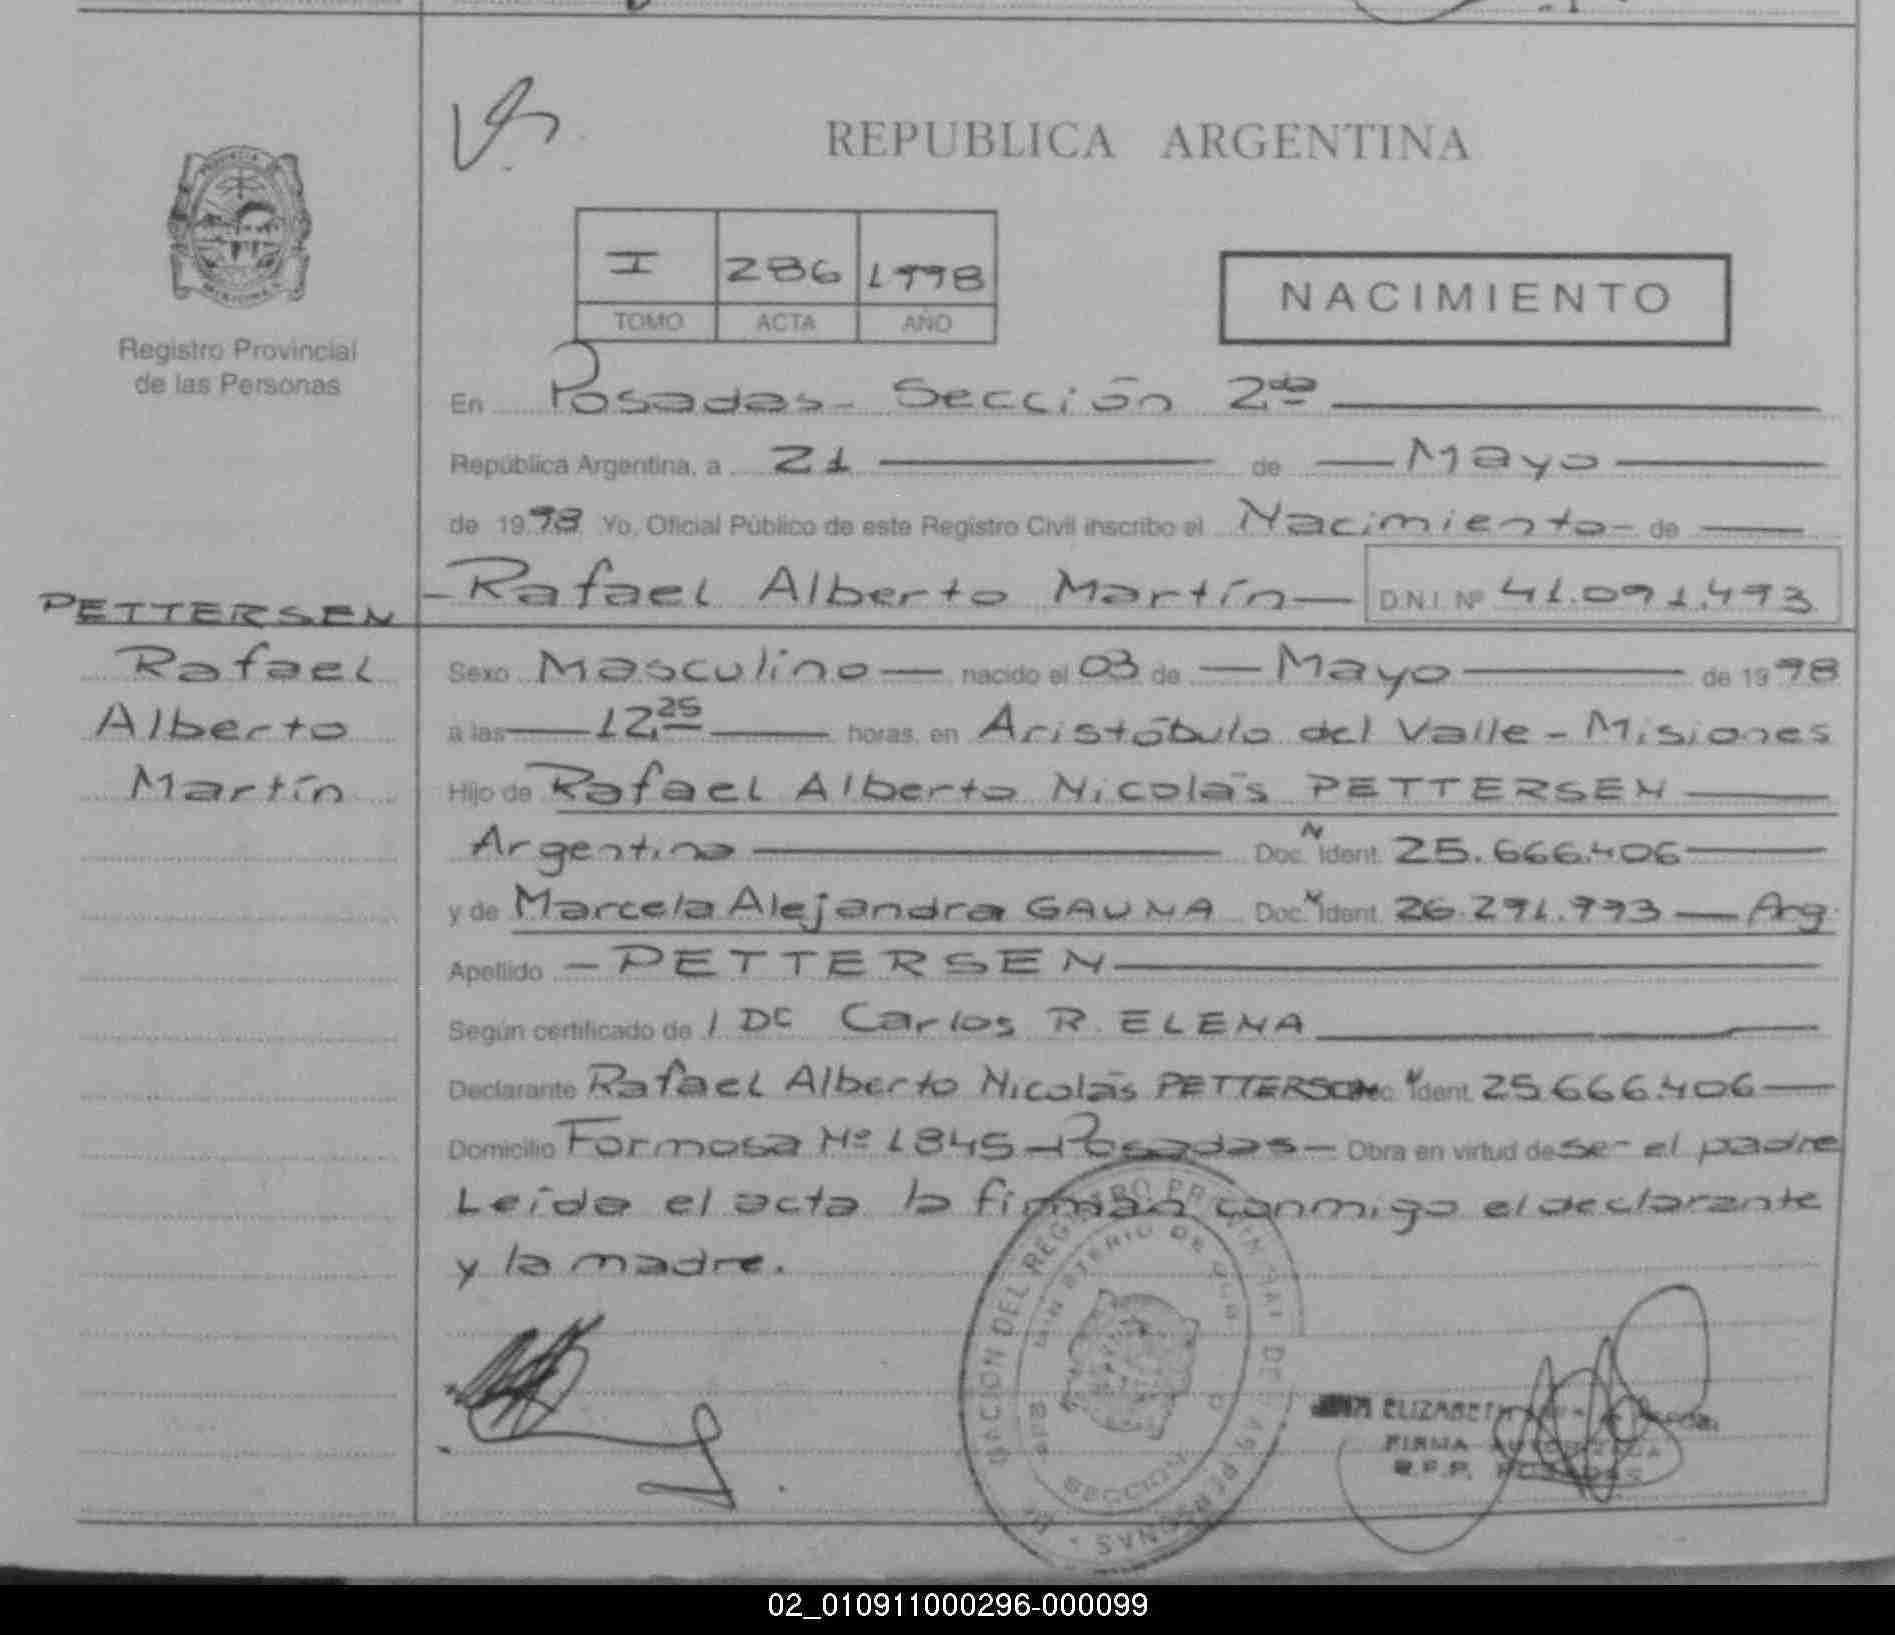 REPUBLICA ARGENTINA
I 286 1998
TOMO ACTA AÑO
NACIMIENTO
Registro Provincial
de las Personas
En Posadas - Sección 2da
República Argentina, a 21 de Mayo
de 1998 Yo, Oficial Público de este Registro Civil inscribo el Nacimiento - de
- Rafael Alberto Martín - D.N.I. Nº 41.091.493
PETTERSEN
Rafael
Alberto
Martín
Sexo Masculino - nacido el 03 de - Mayo de 1998
a las 12,25 horas, en Aristóbulo del Valle - Misiones
Hijo de Rafael Alberto Nicolás PETTERSEN
Argentino Doc. N Ident. 25.666.406
y de Marcela Alejandra GAUNA Doc. N Ident. 26.291.993 - Arg.
Apellido - PETTERSEN
Según certificado de Carlos R. ELENA
Declarante Rafael Alberto Nicolás Ident. 25.666.406
Domicilio Formosa Nº 1845 - Posadas - Obra en virtud de ser el padre
Leída el acta la firman conmigo el declarante
y la madre.
ELIZABETH
FIRMA AUTORIZADA
R.P.P. POSADAS
02_010911000296-000099